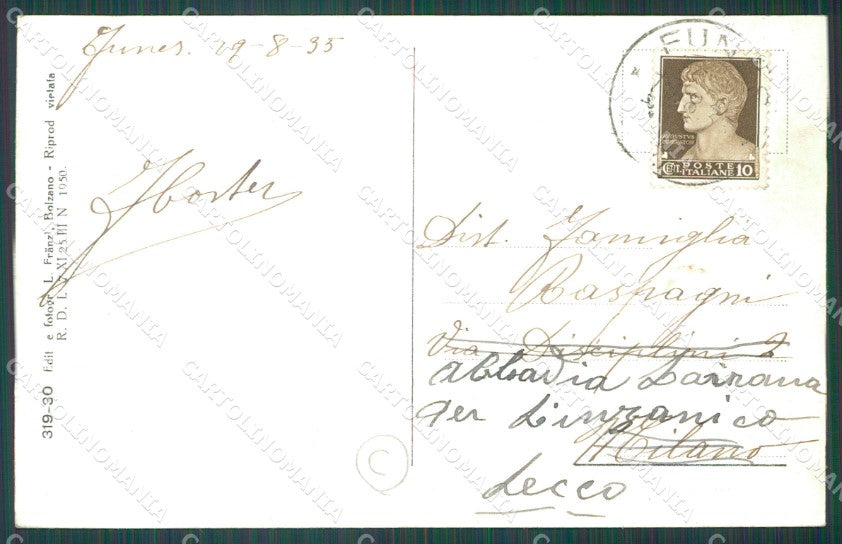 Funes. 29-8-35
FUN
AVGVSTVS
POSTE
ITALIANE
CENT. 10
Dist. Famiglia
Raspagni
Via Disciplini 2
Abbadia Lariana
per Linzanico
Milano
Lecco
C
319-30 Edit e fotogr L. Fränzl, Bolzano - Riprod vietata
R. D. L. 7 XI 25 III N 1950.
CARTOLINOMANIA